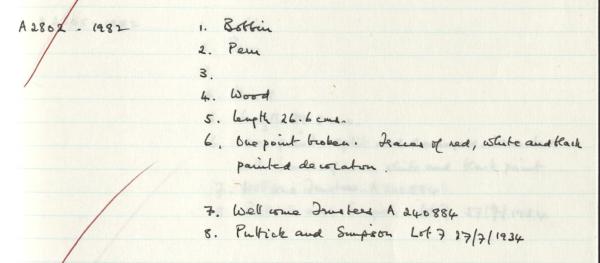 A2802 . 1982
1. Bobbin
2. Peru
3.
4. Wood
5. length 26.6 cms.
6. One point broken. Traces of red, white and black
painted decoration.
7. Wellcome Trustees A 240884
8. Puttick and Simpson Lot 7 27/7/1934